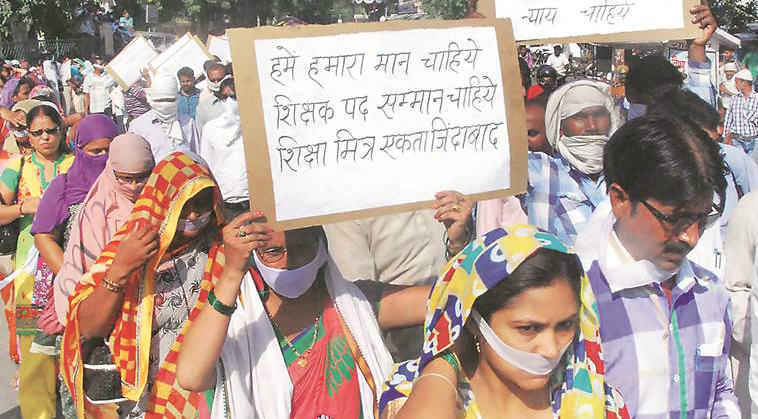 न्याय चाहिये
हमें हमारा मान चाहिये
शिक्षक पद सम्मान चाहिये
शिक्षा मित्र एकता जिंदाबाद